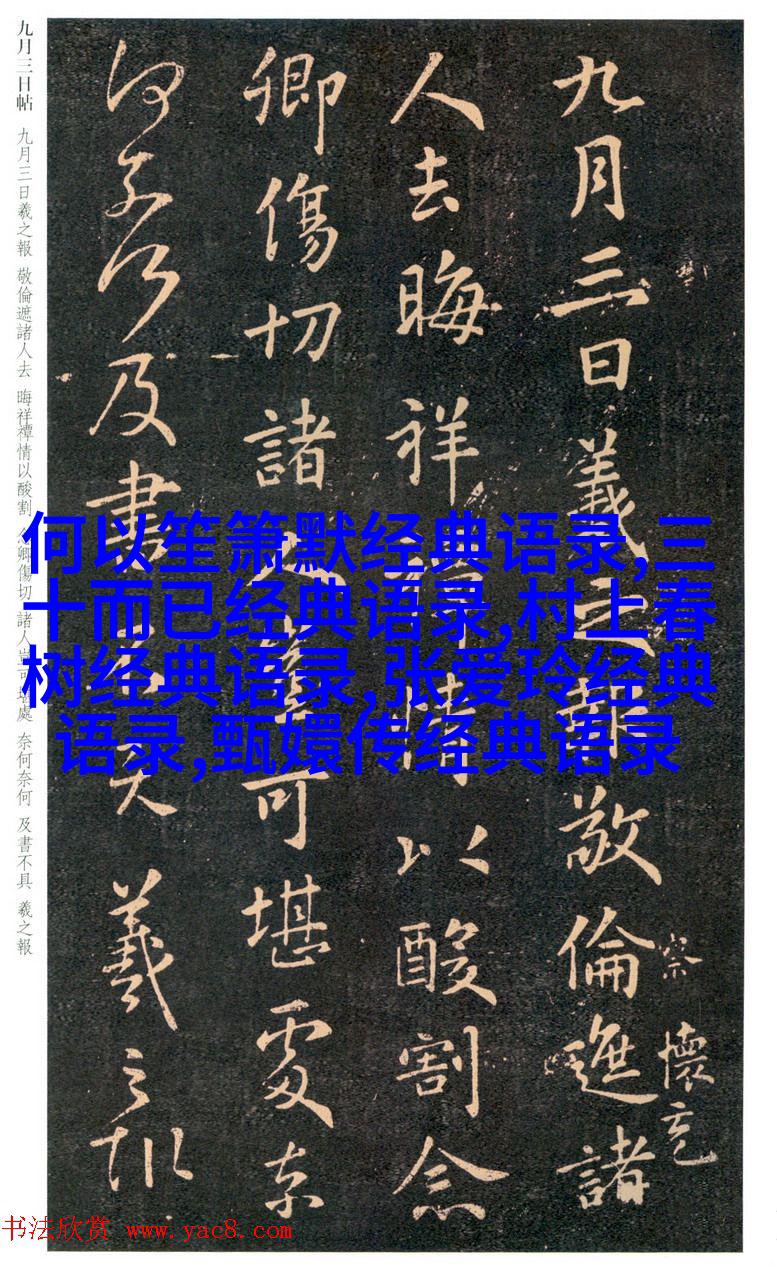 九月三日羲之報敬倫遮諸
察懷充
人去晦祥禫情以酸割念
卿傷切諸人豈可堪處奈
何奈何及書不具羲之報
九月三日帖 九月三日羲之報 敬倫遮諸人去 晦祥禫情以酸割 念卿傷切 諸人豈可堪處 奈何奈何 及書不具 羲之報
何以笙箫默经典语录,三
十而已经典语录,村上春
树经典语录,张爱玲经典
语录,甄嬛传经典语录
书法欣赏 www.yac8.com